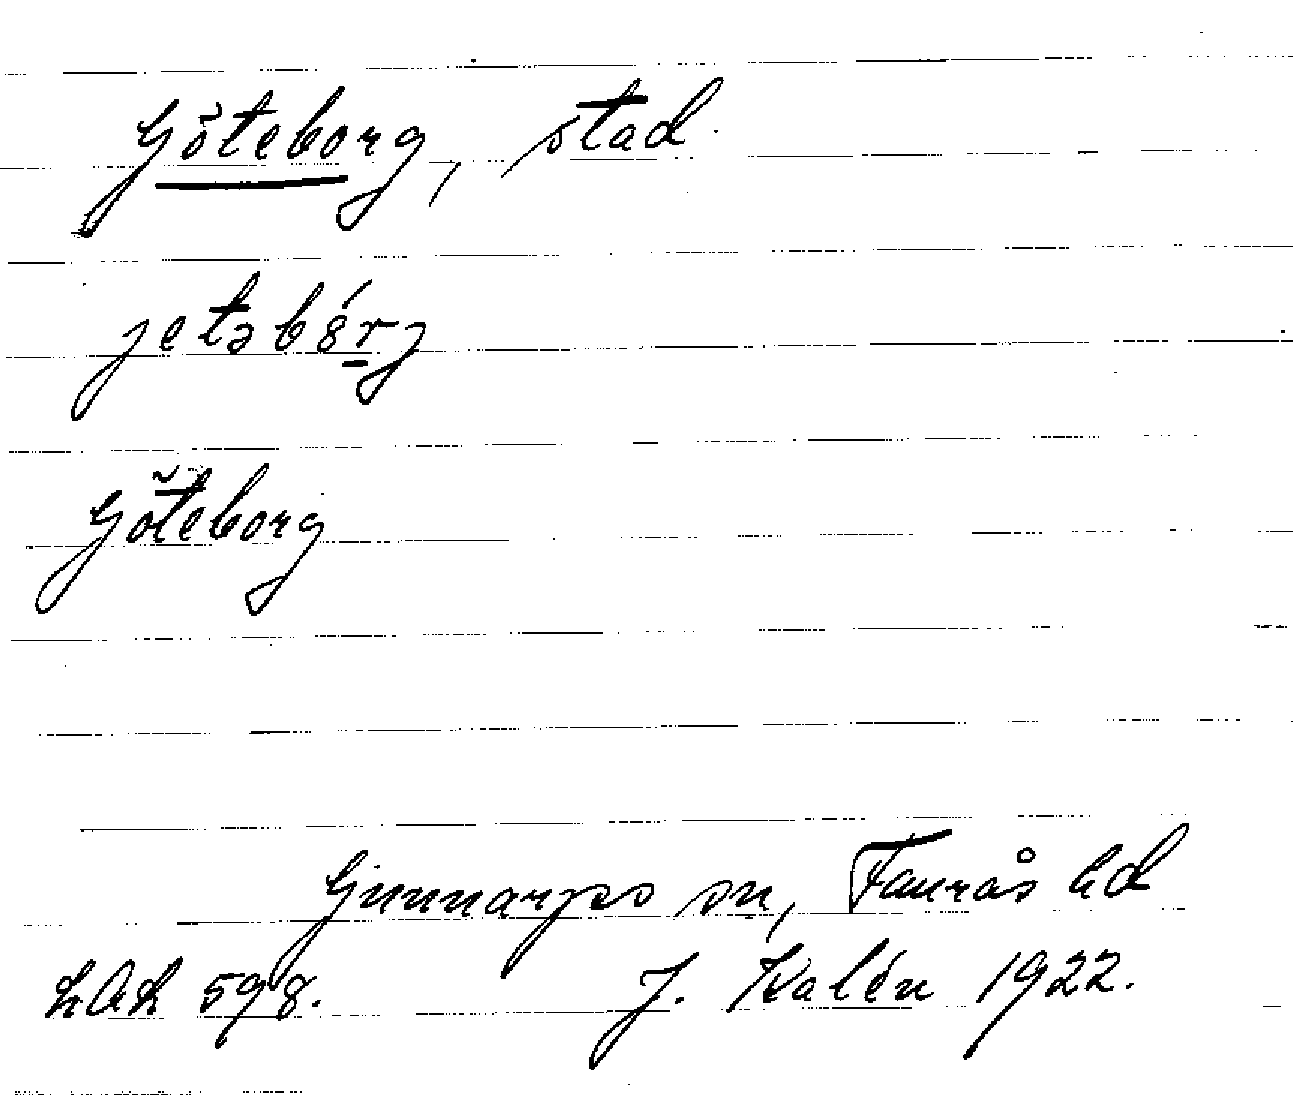 Göteborg, stad.
jetəbérj
Göteborg
Gunnarps sn, Faurås hd
LAL 598. J. Kalén 1922.